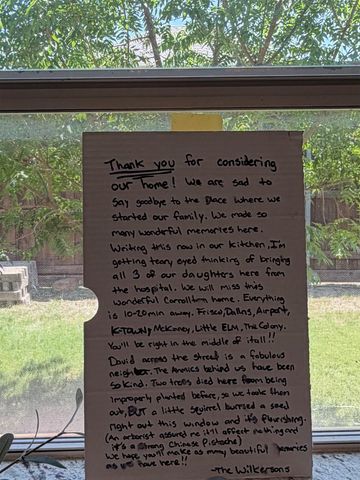 Thank you for considering
our home! We are sad to
say goodbye to the place where we
started our family. We made so
many wonderful memories here.
Writing this now in our kitchen, I'm
getting teary eyed thinking of bringing
all 3 of our daughters here from
the hospital. We will miss this
wonderful Carrollton home. Everything
is 10-20min away. Frisco, Dallas, Airport,
K-TOWN, McKinney, Little Elm, The Colony.
You'll be right in the middle of it all!!
David across the street is a fabulous
neighbor. The behind us have been
so kind. Two trees died here from being
improperly planted before, so we took them
out, BUT a little squirrel burried a seed
right out this window and it's flourishing.
(An arborist assured me it'll affect nothing and
it's a strong Chinese Pistache)
We hope you'll make as many beautiful memories
as we have here!!
-The Wilkersons